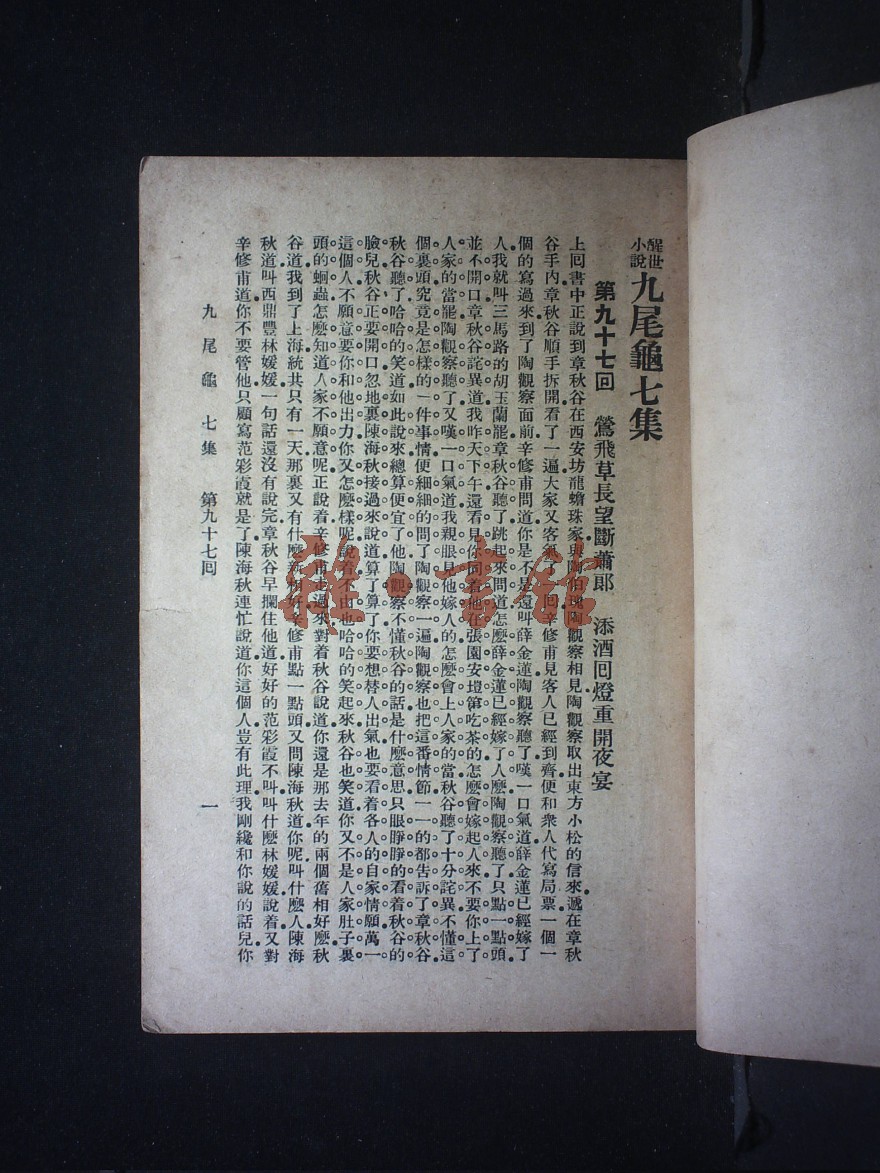 醒世小說 九尾龜七集
第九十七回 鶯飛草長望斷蕭郎 添酒回燈重開夜宴
上回書中正說到章秋谷在西安坊龍蟾珠家與陶伯瑰陶觀察相見陶觀察取出東方小松的信來遞在章秋
谷手內章秋谷順手拆開看了一遍大家又客氣了一回辛修甫見客人已經到齊便和衆人代寫局票一個一
個的寫過來到了陶觀察面前辛修甫問道你是不是還叫薛金蓮陶觀察聽了嘆一口氣道薛金蓮已經嫁了
人我就叫三馬路的胡玉蘭罷章秋谷聽了跳起來問道怎麼薛金蓮已經嫁了人麼陶觀察聽了只點一點頭
並不開口章秋谷詫異道我昨天下午還看見你同着他在張園安塏第吃茶的怎麼會嫁起人來不要你上了
人家的當罷陶觀察聽了又嘆一口氣道我親眼見他嫁人的怎麼會上人家的當秋谷聽了十分詫異不懂這
個裏頭究竟是怎樣的一件事情便細細的問了陶觀察一遍陶觀察也把這番情節一一的都告訴了章秋谷
秋谷聽了哈哈的笑道如此說來總算便宜了他陶觀察不懂秋谷的話是什麼意思只眼睜睜的看着秋谷的
臉兒秋谷正要開口忽地裏陳海秋接過來說道算了算了你要想替人出氣也要看着各人的自家情願萬一
這個人不願意要你和他出力你又怎麼樣呢說着不由也哈哈的笑起來秋谷也笑道你又不是人家肚子裏
頭的蛔蟲怎麼知道人家不願意呢正說着辛修甫走過來對着秋谷說道你還是那去年的兩個舊相好麼秋
谷道我到了上海統共只有一天那裏又有什麼新相好辛修甫點一點頭又問陳海秋道你呢叫什麼人陳海
秋道叫西鼎豐林媛媛一句話還沒有說完章秋谷早攔住他道好好的范彩霞不叫叫什麼林媛媛說着又對
辛修甫道你不要管他只顧寫范彩霞就是了陳海秋連忙說道你這個人豈有此理我剛纔和你說的話兒你
九尾龜 七集 第九十七回 一
雜·書館